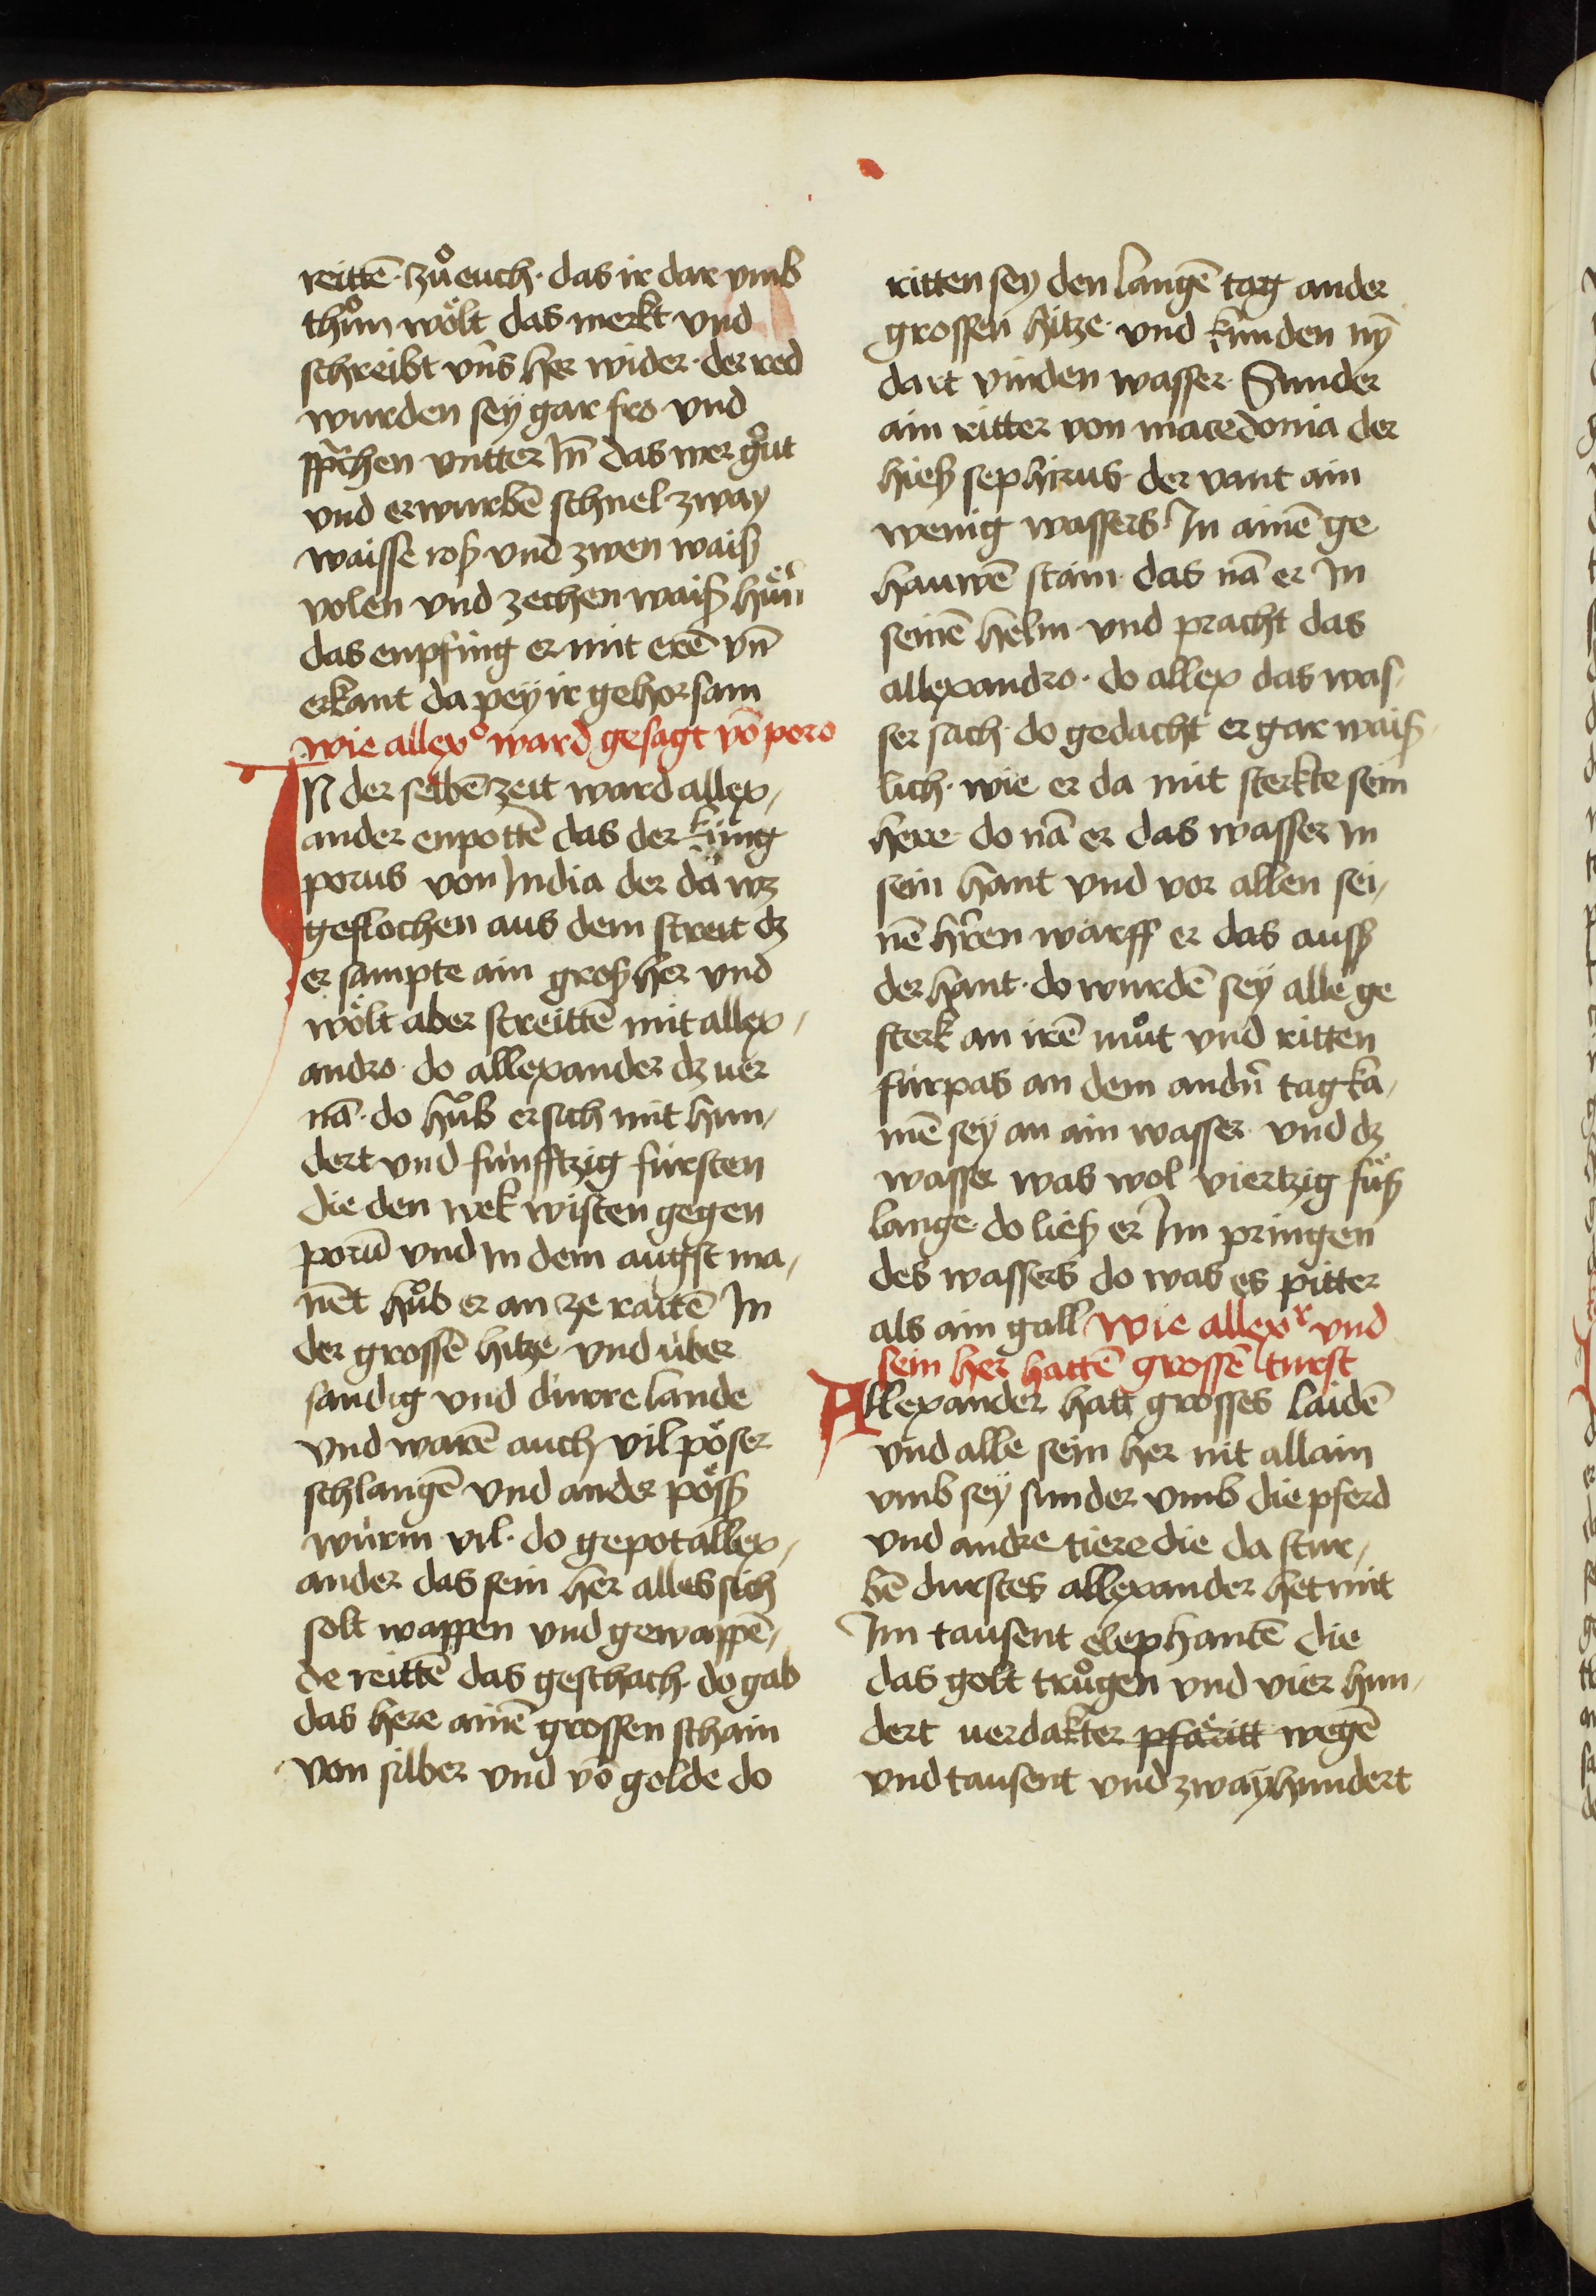 reittē · zuͦ euch · das ir dar vmb
thuͦn woͤlt das merkt vnd
schreibt vns her wider · der red
wurden sey gar fro vnd
sprachen vntter In̄ das wer guͦt
vnd erwurbē schnel zway
waisse roß vnd zwen waiß
volen vnd zechen waiß
das enpfing er mit erē vn̄
erkant da pey ir gehorsam
wie allexº ward gesagt vō poro
IN der selbē zeit ward allex⸗
ander enpottē das der kung
porus von India der da wz
geflochen aus dem streit dz
er sampte ain groß her vnd
woͤlt aber streittē mit allex⸗
andro · do allexander dz uer
nā · do huͦb er sich mit hun⸗
dert vnd fúnfftzig fúrsten
die den wek wisten gegen
porū vnd In dem augst ma⸗
nēt huͦb er an ze raittē In
der grossē hitze vnd úber
sandig vnd dúrre lande
vnd warē auch vil poͤser
schlangē vnd ander poͤss
wúrm vil · do gepot allex⸗
ander das sein her alles sich
solt wappen vnd gewappē⸗
de reittē das geschach · do gab
das here ainē grossen schain
von silber vnd vō golde do
ritten sey den langē tag an der
grossen hitze · vnd kunden nȳ
dart vinden wasser · Sunder
ain ritter von macedonia der
hieß sephirus · der vant ain
wenig wassers · In ainē ge
hauwē stain · das nā er In
seinē helm · vnd pracht das
allexandro · do allex das was⸗
ser sach · do gedacht er gar waiß⸗
lich · wie er da mit sterkte sein
here · do nā er das wasser In
sein hant vnd vor allen sei⸗
nē hr̄en warff er das auss
der hant · do wurdē sey alle ge
sterk an irē muͦt vnd ritten
fúrpas an dem andn̄ tag ka⸗
mē sey an ain wasser · vnd dz
wasser was wol viertzig fuͤß
lange · do ließ er Im pringen
des wassers do was es pitter
als ain gall wie allexr vnd
sein her hattē grossē turst
Allexander hatt grosses laidē
vnd alle sein her nit allain
vmb sey sunder vmb die pferd
vnd andre tiere die da stur⸗
bē durstes allexander het mit
Im tausent elephantē die
das golt truͦgen vnd vier hun⸗
dert uerdakter pfaͤritt wegē
vnd tausent vnd zwayhundert